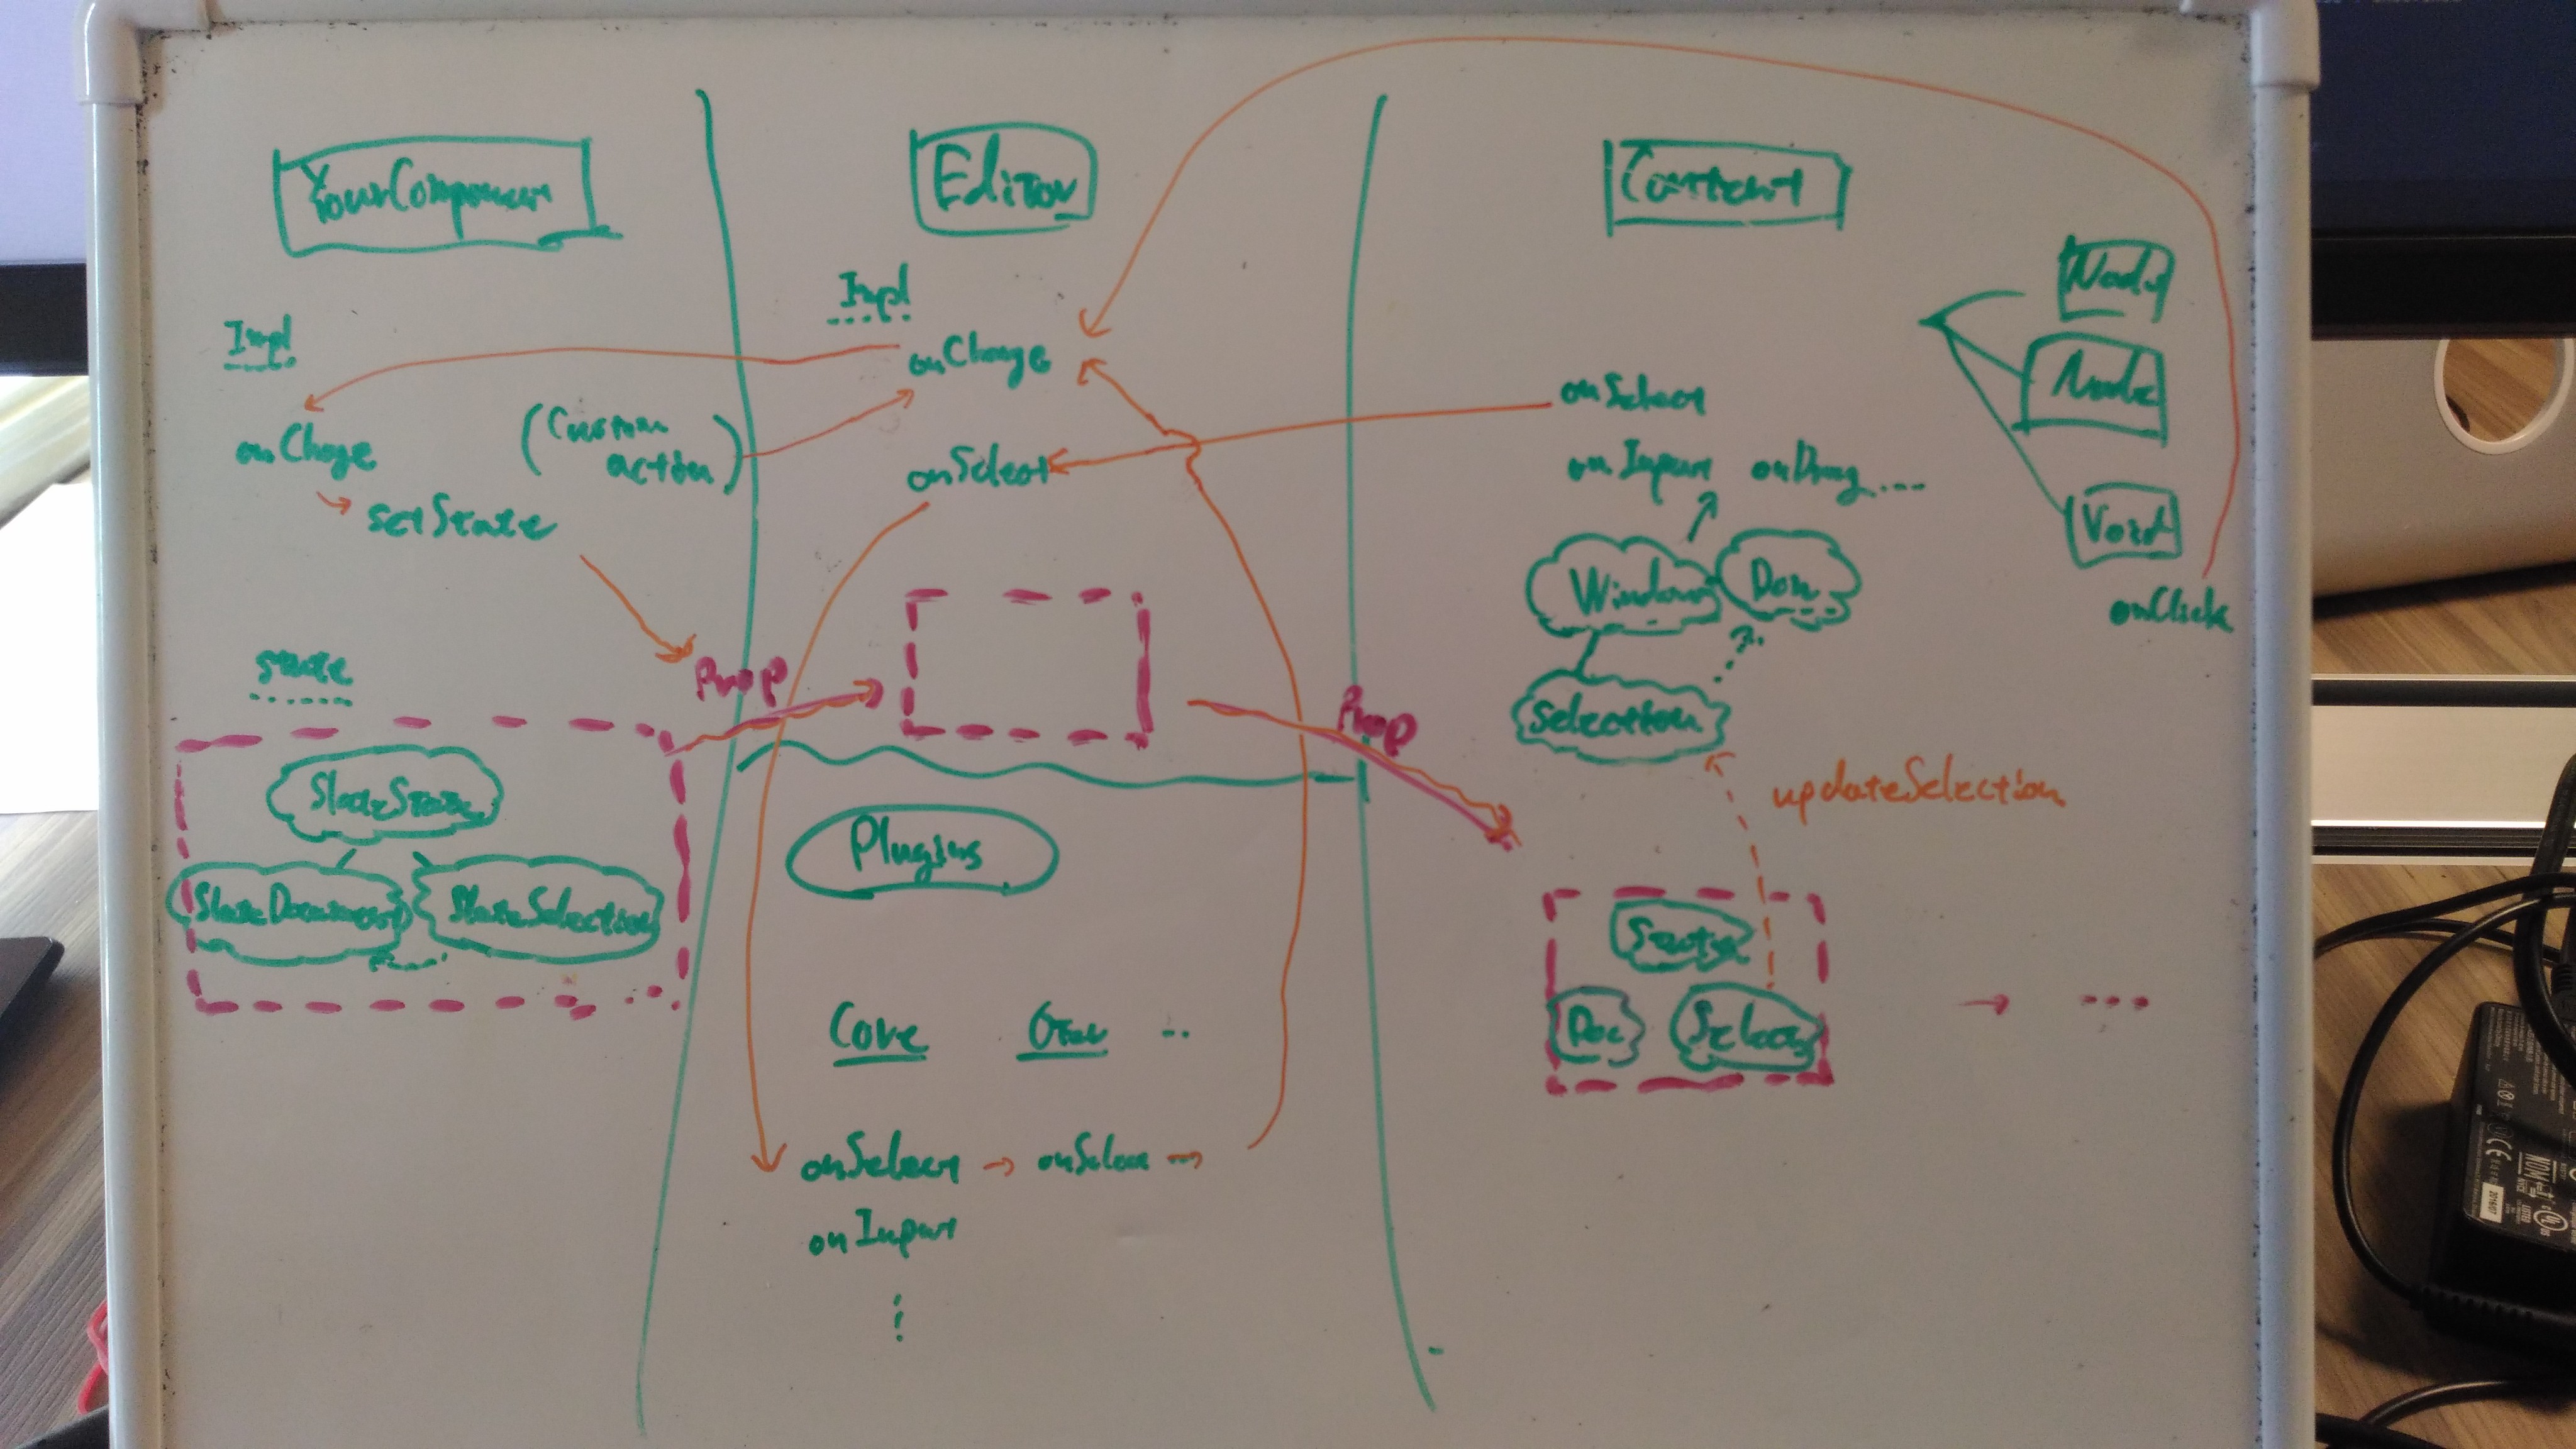 YourComponent
Impl
onChange
(Custom
action)
setState
state
SlateState
SlateDocument
SlateSelection
Prop
Editor
Impl
onChange
onSelect
Plugins
Core
..
onSelect → onSelect
onInput
Prop
Content
onSelect
onInput onDrag ....
Window
Dom
Selection
updateSelection
State
Doc
Select
→ ...
Node
Node
Void
onClick